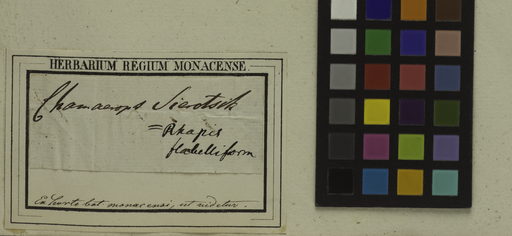 HERBARIUM REGIUM MONACENSE
Chamaerops Sierotsik
= Rhapis
flabelliform
Ex horto bot. monacensi, ut videtur.